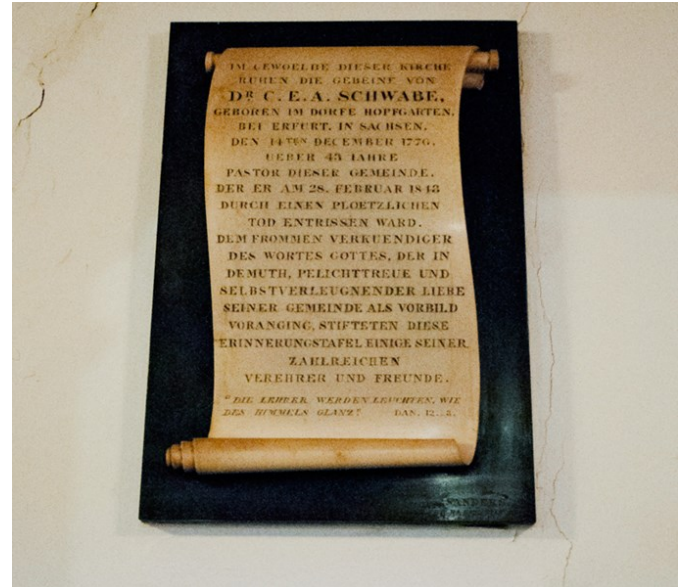 IM GEWOELBE DIESER KIRCHE
RUHEN DIE GEBEINE VON
DR. C. E. A. SCHWABE,
GEBOREN IM DORFE HOPFGARTEN,
BEI ERFURT, IN SACHSEN,
DEN 14TEN DECEMBER 1776.
UEBER 45 IAHRE
PASTOR DIESER GEMEINDE,
DER ER AM 28. FEBRUAR 1843
DURCH EINEN PLOETZLICHEN
TOD ENTRISSEN WARD.
DEM FROMMEN VERKUENDIGER
DES WORTES GOTTES, DER IN
DEMUTH, PFLICHTTREUE UND
SELBSTVERLEUGNENDER LIEBE
SEINER GEMEINDE ALS VORBILD
VORANGING, STIFTETEN DIESE
ERINNERUNGSTAFEL EINIGE SEINER
ZAHLREICHEN
VEREHRER UND FREUNDE.
"DIE LEHRER WERDEN LEUCHTEN, WIE
DES HIMMELS GLANZ" DAN. 12. 3.
SANDERS